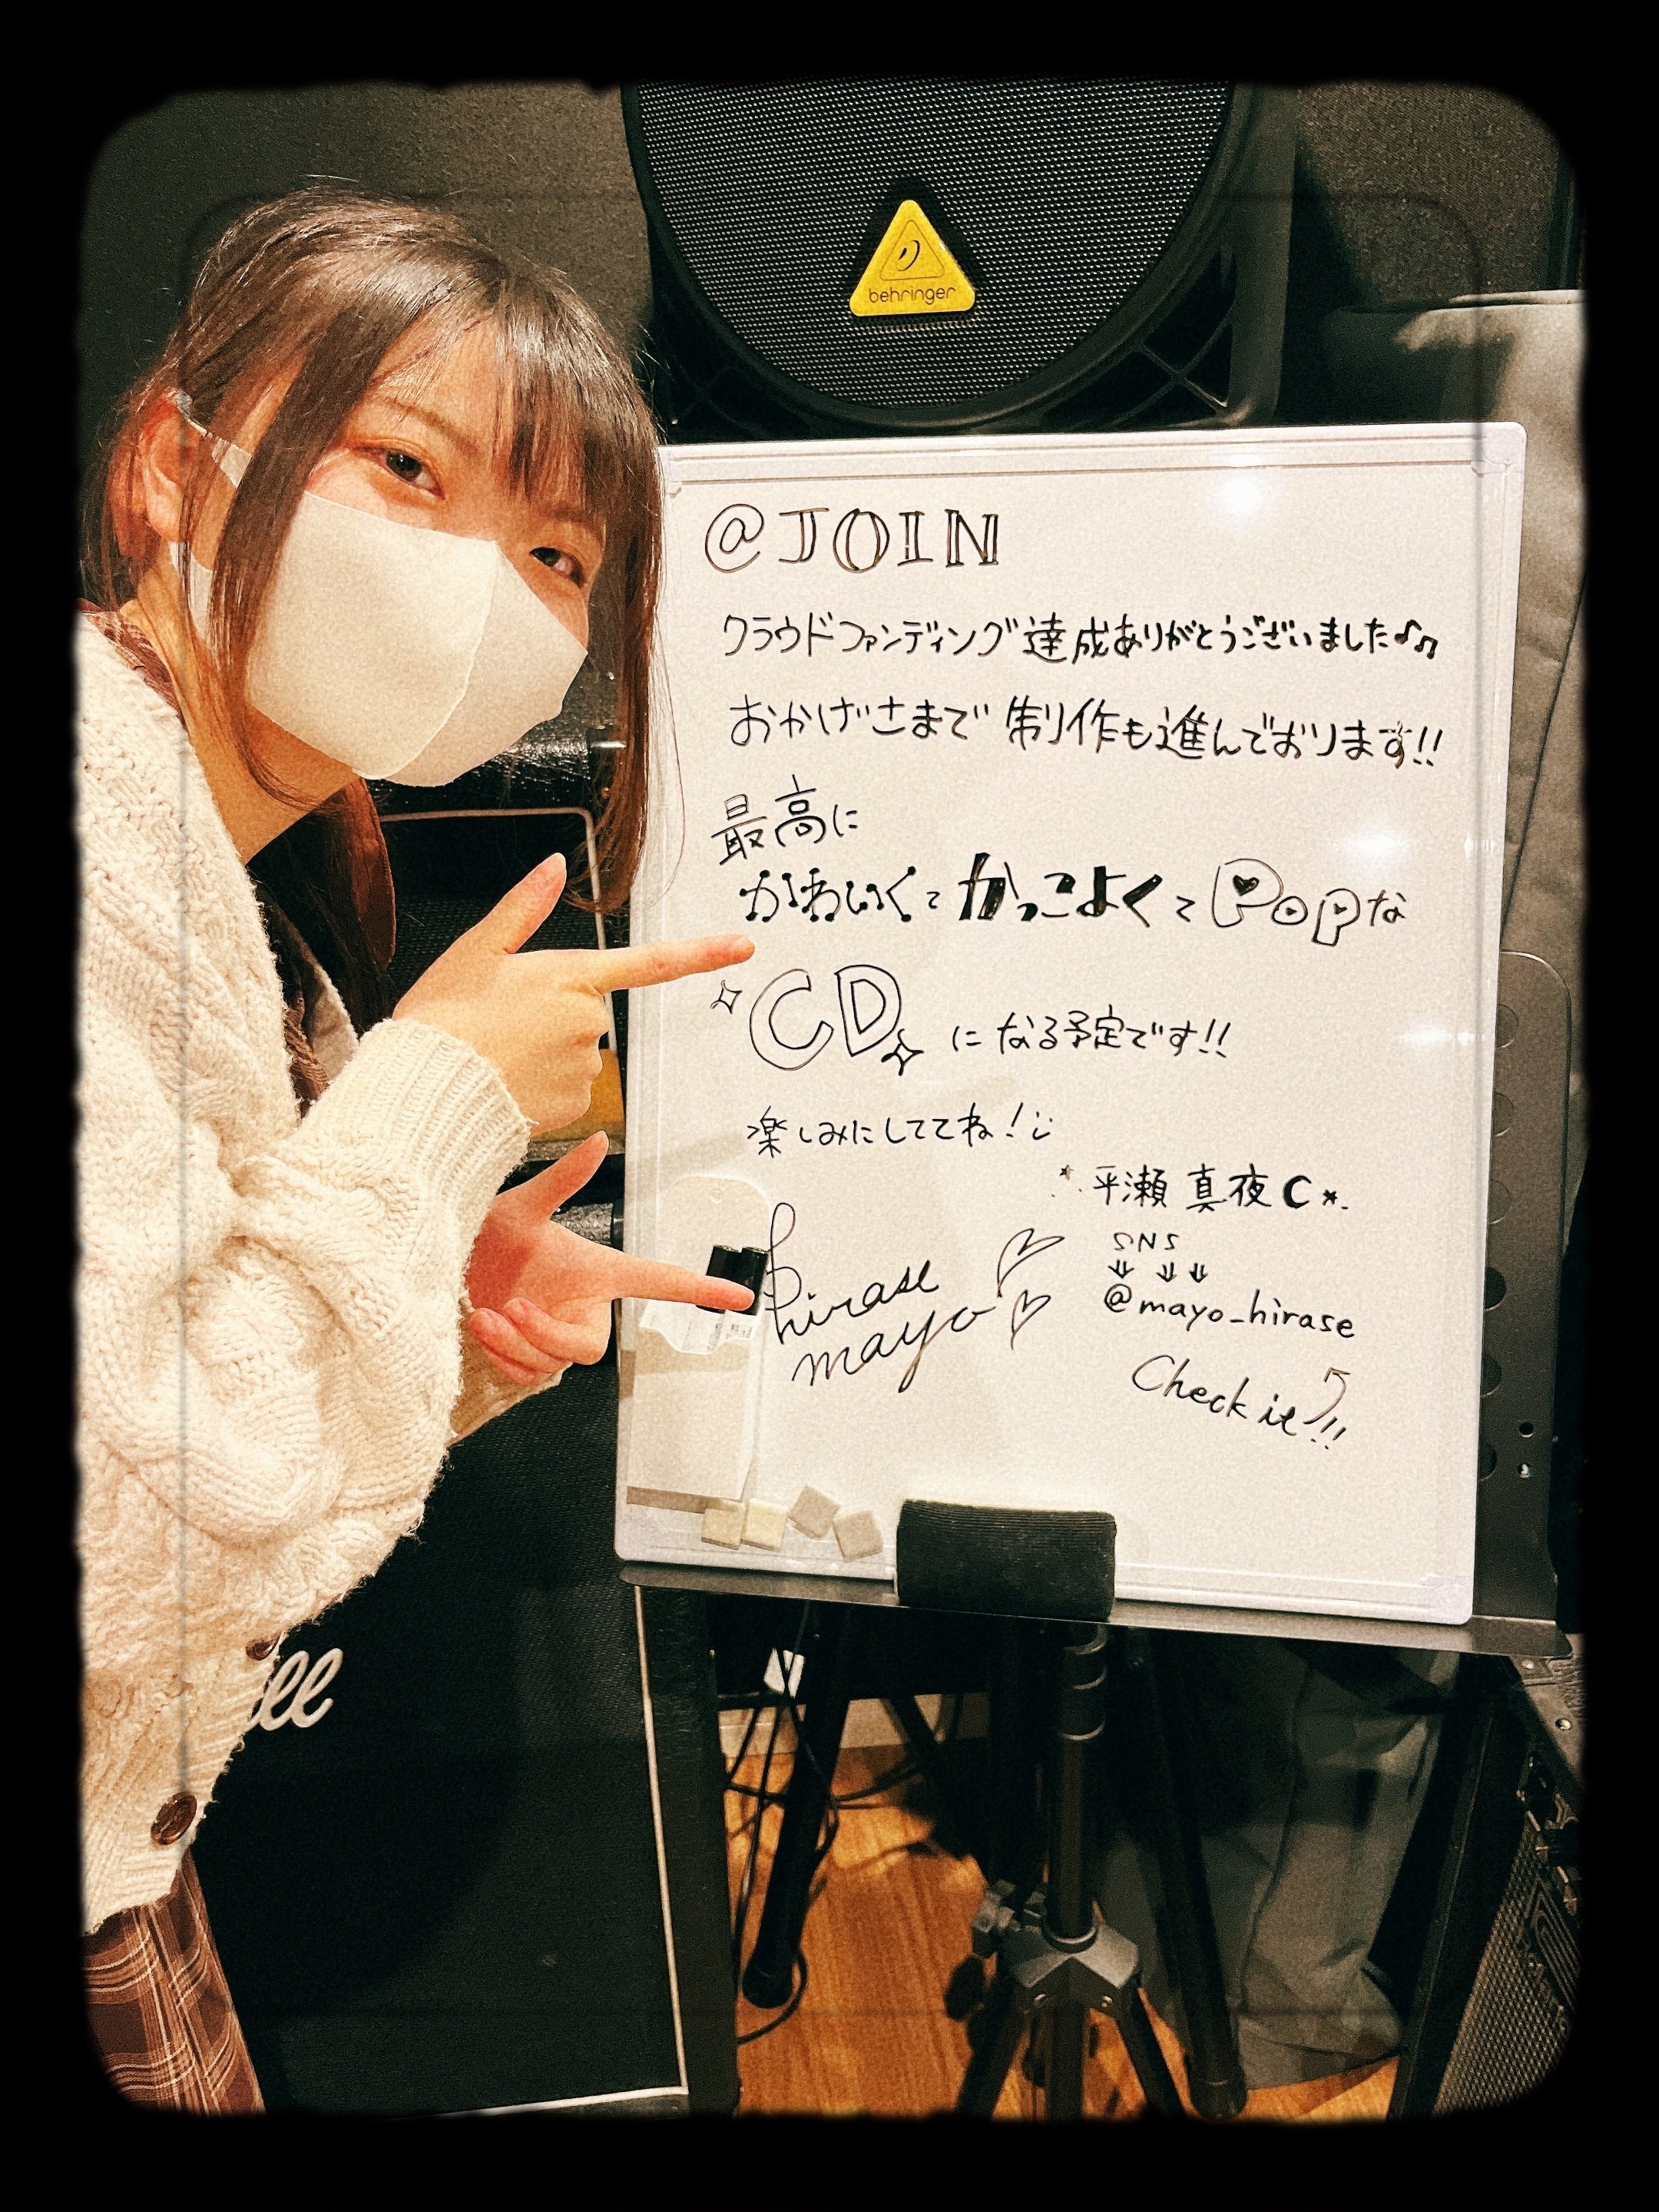 behringer
@JOIN
クラウドファンディング達成ありがとうございました♪♫
おかげさまで制作も進んでおります!!
最高に
かわいくてかっこよくてPopな
CDになる予定です!!
楽しみにしててね!
平瀬 真夜
SNS
@mayo_hirase
Check it!!
hirase
mayo